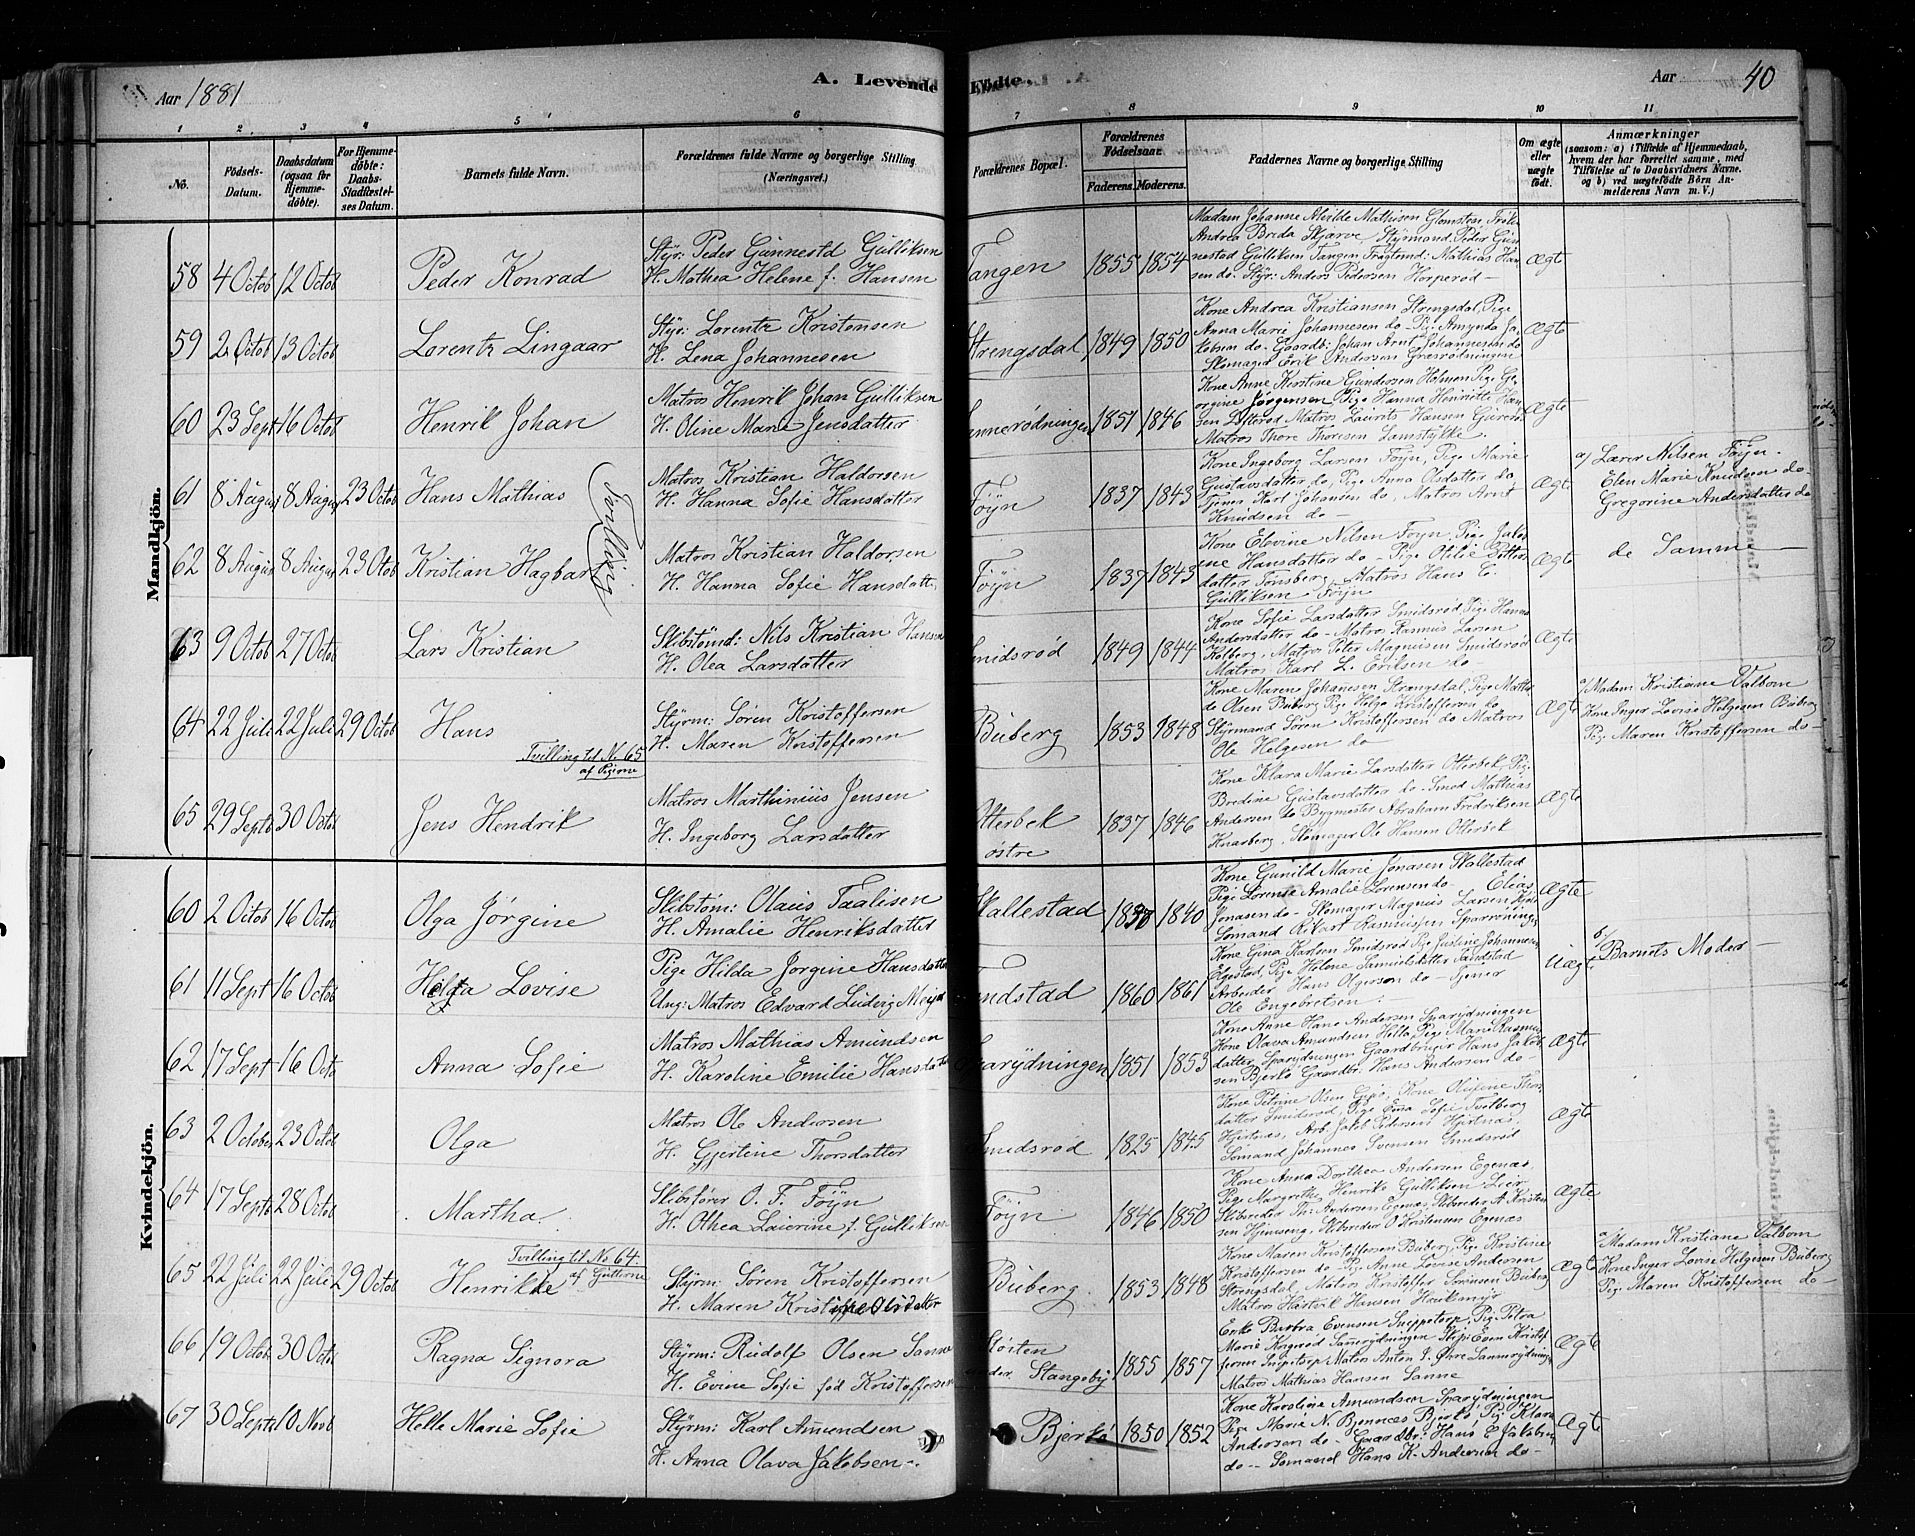 Aar 1881
A. Levende Födte.
Aar 40
1 2 3 4 5 6 7 8 9 10 11
No.
Födsels-Datum.
Daabsdatum (ogsaa for Hjemmedöbte).
For Hjemmedöbte: Daabs-Stadfæstelses Datum.
Barnets fulde Navn.
Forældrenes fulde Navne og borgerlige Stilling. (Næringsvei.)
Forældrenes Bopæl.
Forældrenes Födselsaar.
Faderens. Moderens.
Faddernes Navne og borgerlige Stilling
Om ægte eller uægte födt.
Anmærkninger
(saasom: a) i Tilfælde af Hjemmedaab, hvem der har forrettet samme, med Tilföielse af to Daabsvidners Navne. og b) ved uægtefödte Börn Anmelderens Navn m. V.)
Mandkjön.
58 4 Octob 12 Octob Peder Konrad
Styr: Peder Gunnestd Gulliksen
H. Mathea Helene f. Hansen
Tangen 1855 1854
Madam Johanne Alvilde Mathisen Glomsten Frøken
Andrea Breda Skjærve, Styrmand Peder Gun
nestad Gulliksen Tangen Mathias Han
sen do. Styr: Anders Pedersen Harperød
Ægte
59 2 Octob 13 Octob Lorentz Lingaar
Styr: Lorentz Kristensen
H. Lena Johannesen
Strengsdal 1849 1850
Kone Andrea Kristiansen Strengsdal, Pige
Anna Marie Johannesen do Pige Amynda Ja
kobsen do. Gaardb: Johan Arnt Johannesen do
Skomager Erik Andersen Græsrødningen
Ægte
60 23 Sept 16 Octob Henrik Johan
Matros Henrik Johan Gulliksen
H. Oline Marie Jensdatter
Sannerødningen 1851 1846
Kone Anne Kirstine Gundersen Holmen Pige Ge
orgine Jørgensen Pige Hanna Henriette Han
sen Matros Laurits Hansen
Matros Thore Thoresen Lamstykke
Ægte
61 8 August 8 August 23 Octob Hans Mathias
Tvilling
Matros Kristian Haldorsen
H. Hanna Sofie Hansdatter
Føyn 1837 1843
Kone Ingeborg Larsen Føyn, Pige Marie
Gustavsdatter do, Pige Anna Olsdatter do
Tjener Karl Johansen do, Matros Arnt
Knudsen do
Ægte
a) Lærer Nilsen Føyn.
Elen Marie Knudsen do
Gregorine Andersdatter do
62 8 August 8 August 23 Otob Kristian Hagbar
Matros Kristian Haldorsen
H. Hanna Sofie Hansdatt
Føyn 1837 1843
Kone Elevine Nilsen Føyn, Pige Jako
ine Hansdatter do Pige Otilie Petters
datter Tønsberg, Matros Hans C.
Gulliksen Føyn
Ægte
de Samme
63 9 Octob 27 Octo Lars Kristian
Skibstømd: Nils Kristian Hansen
H. Olea Larsdatter
Smidsrød 1849 1844
Kone Sofie Larsdatter Smidsrød, Pige Hanna
Andersdatter do Matros Rasmus Larsen
Kolberg, Matros Peter Magnusen Smidsrød
Matros Karl L. Eriksen do
Ægte
64 22 Juli 22 Juli 29 Octob Hans
Tvilling til No 65
af Pigerne
Styrm: Søren Kristoffersen
H. Maren Kristoffersen
Buberg 1853 1848
Kone Maren Johannesen Strengsdal, Pige Mathil
de Olsen Buberg Pige Helga Kristoffersen do
Styrmand Søren Kristoffersen do Matros
Ole Helgesen do
Ægte
a) Madam Kristiane Valbom
Kone Inger Lovise Helgesen Buberg
Pige Maren Kristoffersen do
65 29 Septb 30 Octo Jens Hendrik
Matros Marthinius Jensen
H. Ingeborg Larsdatter
Otterbek østre 1837 1846
Kone Klara Marie Larsdatter Otterbek, Pige
Bredine Gustavsdatter do Smed Mathias
Andersen do Bygmester Abraham Fredriksen
Knarberg, Skomager Ole Hansen Otterbek
Ægte
Kvindekjön.
60 2 Octob 16 Octo Olga Jørgine
Skibstøm: Olaus Taalisen
H. Amalie Henriksdatter
Skallestad 1840
Kone Gunild Marie Jonasen Skallestad
Pige Lorense Amalie Lorensen do Elias
Jonasen do Skomager Magnus Larsen
Sømand Rikart Rasmussen
Ægte
61 11 Sept 16 Octob Helga Lovise
Pige Hilda Jørgine Hansdatter
Ung: Matros Edvard Ludvig Meyer
Sundstad 1860 1861
Kone Gina Karlsen Smidsrød Pige Justine Johannesen
Elgestad, Pige Helene Samuelsdatter Sandstad
Arbeider Hans Olgersen do Tjener
Ole Engebretsen
Uægt
b/ Barnets Moder
62 17 Sept 16 Octo Anna Sofie
Matros Mathias Amundsen
H. Karoline Emilie Hansdatter
Sparydningen 1851 1853
Kone Anne Hans Andersen Sparydningen
Kone Olava Amundsen Helle, Pige Marie Rasmus
datter Sparydningen Gaardbruger Hans Jakob
sen Bjerkø Gaardbr: Hans Andersen do
Ægte
63 2 October 23 Octob Olga
Matros Ole Andersen
H. Gjertine Thorsdatter
Smidsrød 1825 1845
Kone Petrine Olsen Gipø, Kone Olufene Thors
datter Smidsrød, Pige Ena Sofie Tvelberg
Hjertnæs, Arb. Jakob Pedersen Hjertnæs,
Sømand Johannes Svensen Smidsrød
Ægte
64 17 Septb 28 Octob Martha
Skibsfører O. F. Føyn
H. Othea Laverine f. Gulliksen
Føyn 1846 1850
Kone Anna Dorthea Andersen Egenæs
Pige Margrethe Henrike Gulliksen Lier
Skibsreder Th: Andersen Egenæs, Skibsreder A Kristen
sen Hjemseng, Skibsreder O Kristensen Egenæs
Ægte
65 22 Juli 22 Juli 29 Octob Henrikke
Tvilling til No 64.
af Gutterne
Styrm: Søren Kristoffersen
H. Maren Kristine Olsdatter
Buberg 1853 1848
Kone Maren Kristoffersen Buberg, Pige Kristine
Kristoffersen do Pige Anne Lovise Andersen
Strengsdal, Matros Kristoffer Sørensen Buberg
Matros Hartvik Hansen Haukemyr
Ægte
a) Madam Kristiane Valbom
Kone Inger Lovise Helgesen Buberg
Pige Maren Kristoffersen do
66 19 Octob 30 Octo Ragna Signora
Styrm: Rudolf Olsen Sanne
H. Evine Sofie fød Kristoffersen
Holsten under Stangeby 1855 1857
Enke Barbra Evensen Sneppetorp, Pige Petra
Marie Sannerydningen Even Kristof
fersen Snepetorp Matros Anton I. Øhre Sannerydningen
Matros Mathias Hansen Sanne
Ægte
67 30 Septb 10 Novb Helle Marie Sofie
Styrm: Karl Amundsen
H. Anna Olava Jakobsen
Bjerkø 1850 1852
Kone Karoline Amundsen Sparydningen
Pige Marie N. Bjønnes Bjerkø Pige Klara
Andersen do Gaardbr: Hans E Jakobsen
do Sømand Hans K. Andersen do
Ægte